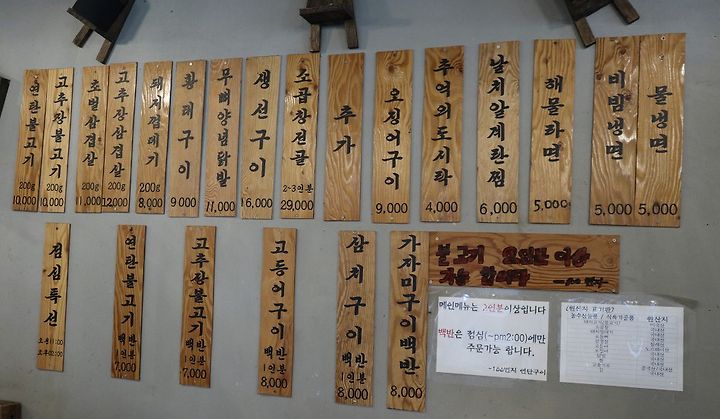 연탄불고기 200g 10,000
고추장불고기 200g 10,000
초벌삼겹살 200g 11,000
고추장삼겹살 200g 12,000
돼지껍데기 200g 8,000
황태구이 9,000
무뼈양념닭발 11,000
생선구이 16,000
소곱창전골 2~3인분 29,000
추가
오징어구이 9,000
추억의도시락 4,000
날치알계란찜 6,000
해물라면 5,000
비빔냉면 5,000
물냉면 5,000
점심특선
연탄불고기 백반 1인분 7,000
고추장불고기 백반 1인분 7,000
고등어구이 백반 1인분 8,000
삼치구이 백반 1인분 8,000
가자미구이백반 8,000
불고기 2인분 이상
가능 합니다
메인메뉴는 2인분이상입니다
백반은 점심(~pm2:00)에만
주문가능 합니다.
연탄구이
원산지